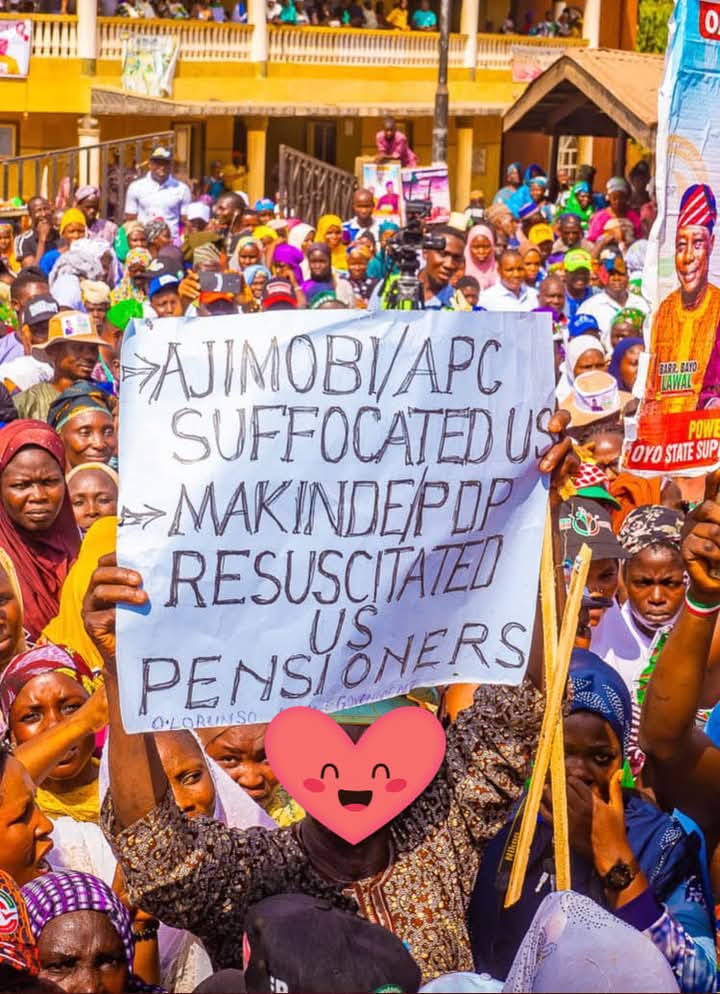 →AJIMOBI/APC
SUFFOCATED US
→MAKINDE/PDP
RESUSCITATED
US
PENSIONERS
O'LORUNSO
BARR. BAYO
LAWAL
OYO STATE